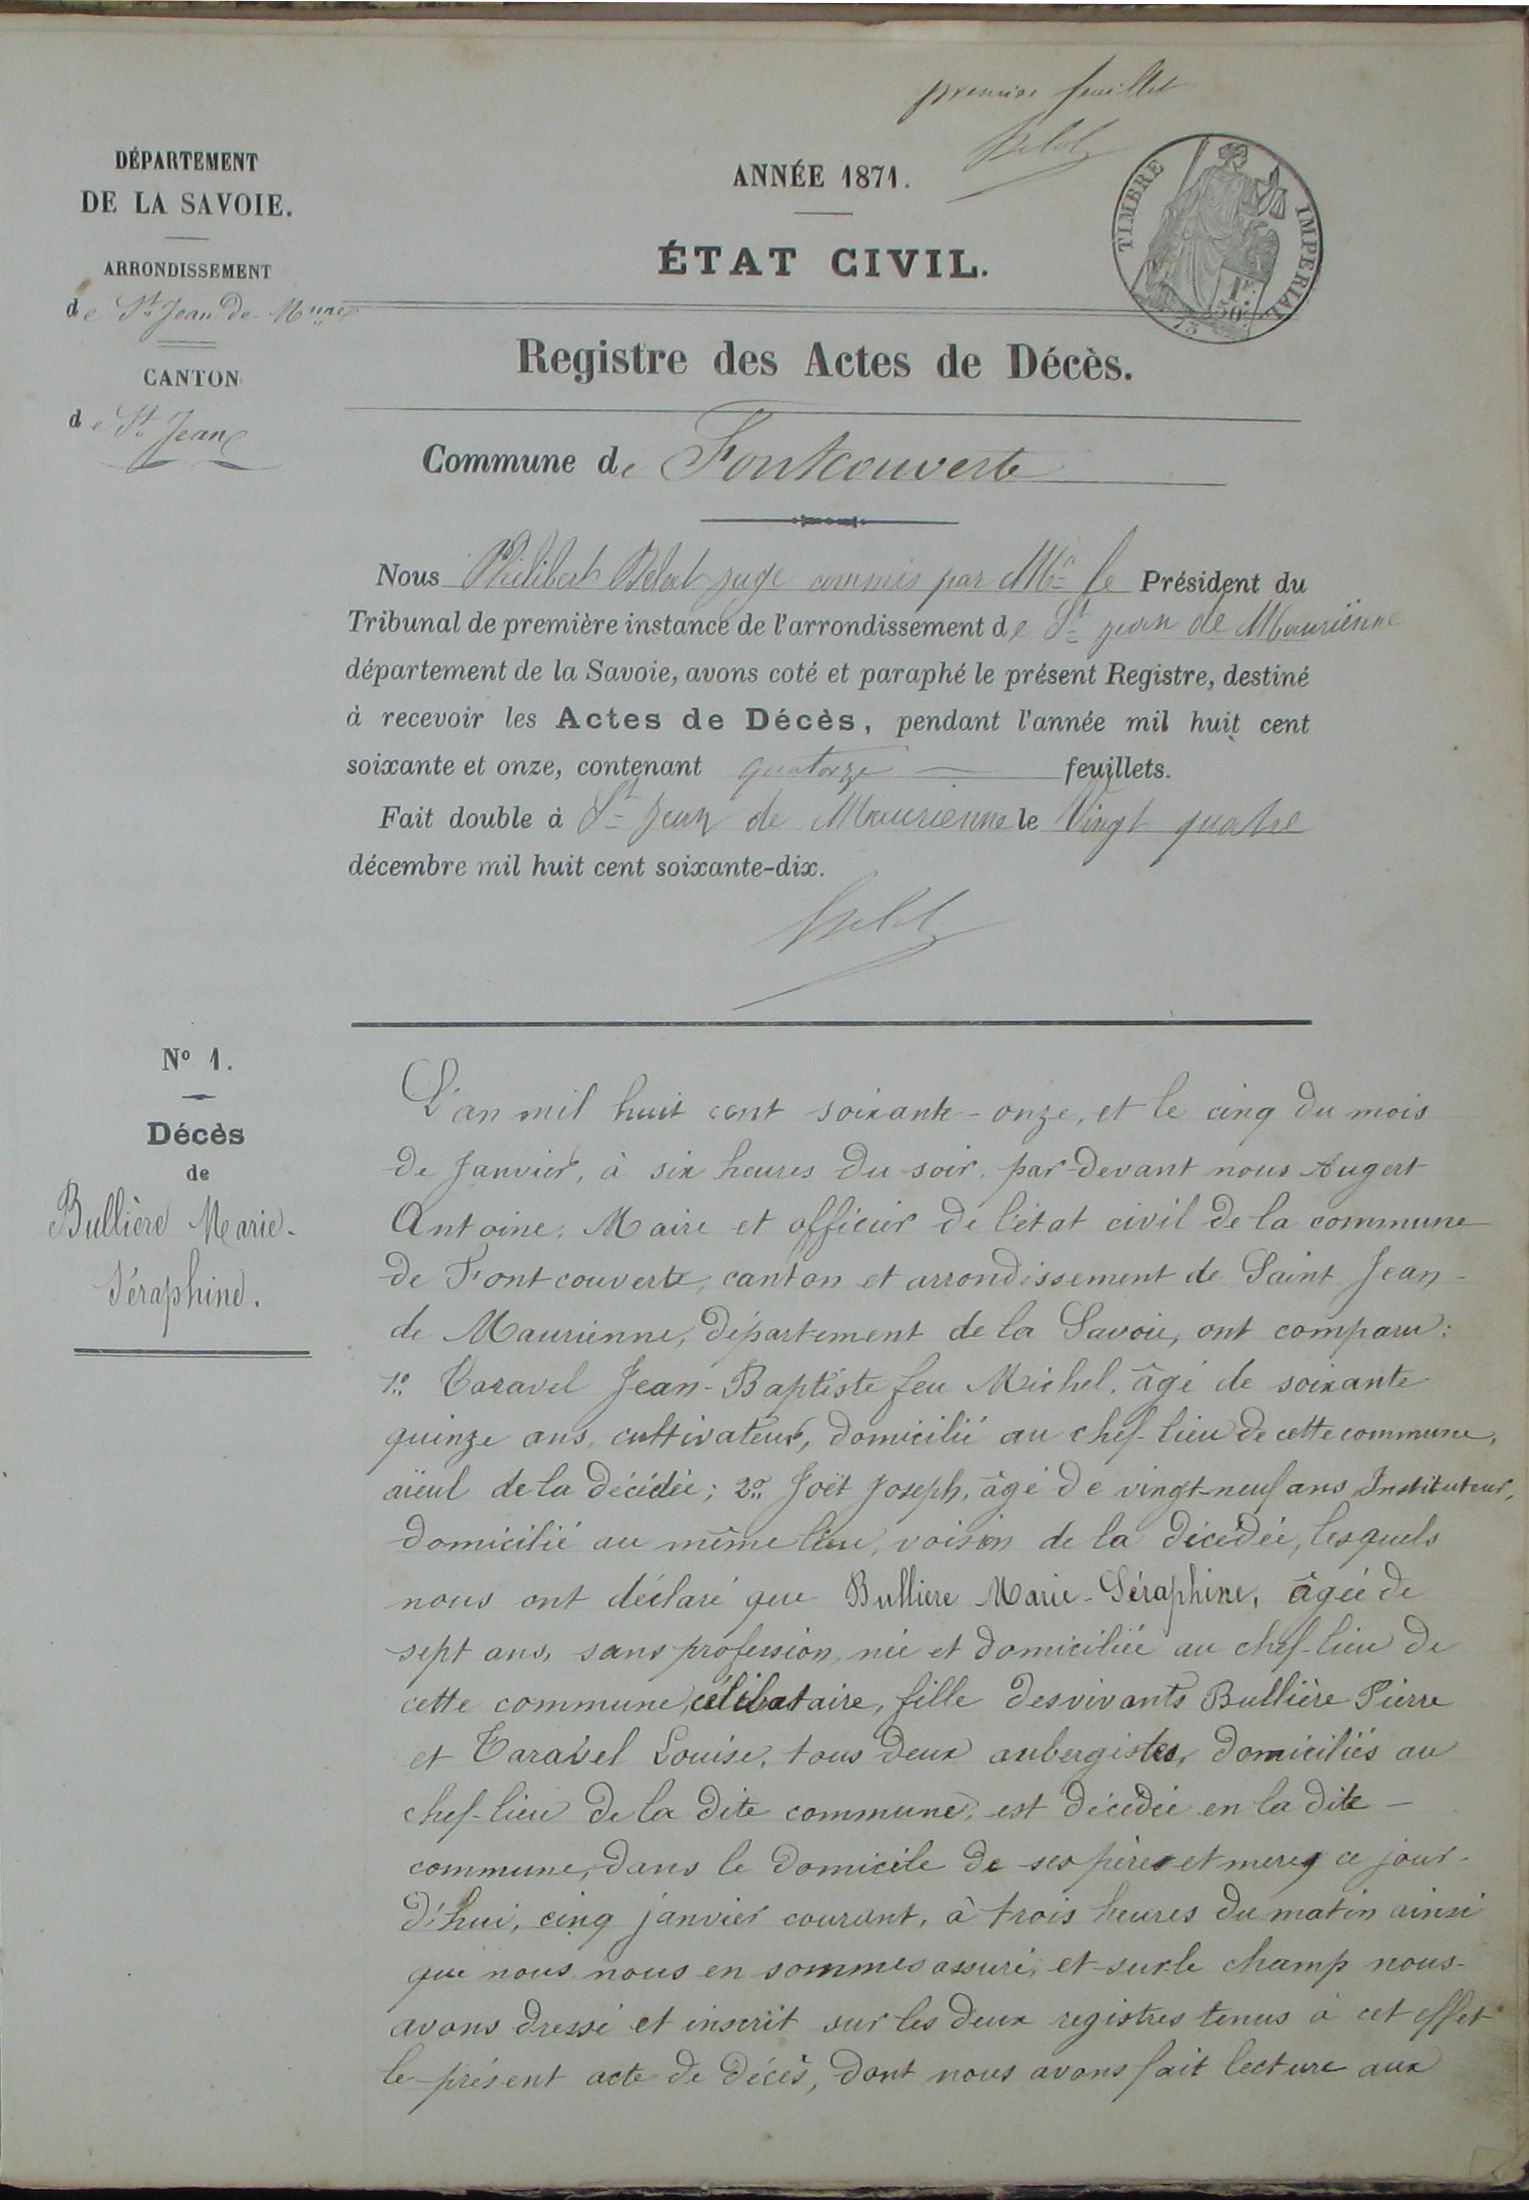 premier feuillet
DÉPARTEMENT
DE LA SAVOIE.
ARRONDISSEMENT
de St Jean de Mnne
CANTON
de St Jean
ANNÉE 1871.
ÉTAT CIVIL.
TIMBRE IMPERIAL
1F 50C
Registre des Actes de Décès.
Commune de Fontcouverte
Nous Philibert juge commis par Mr le Président du
Tribunal de première instance de l'arrondissement de St jean de Maurienne
département de la Savoie, avons coté et paraphé le présent Registre, destiné
à recevoir les Actes de Décès, pendant l'année mil huit cent
soixante et onze, contenant quatorze feuillets.
Fait double à St jean de Maurienne le Vingt quatre
décembre mil huit cent soixante-dix.
No 1.
Décès
de
Bullière Marie-
Séraphine.
L'an mil huit cent soixante-onze, et le cinq du mois
de Janvier, à six heures du soir, par-devant nous Augert
Antoine, Maire et officier de l'état civil de la commune
de Fontcouverte, canton et arrondissement de Saint Jean-
de Maurienne, département de la Savoie, ont comparu:
1o Taravel Jean-Baptiste feu Michel, âgé de soixante
quinze ans, cultivateur, domicilié au chef-lieu de cette commune,
aïeul de la décédée; 2o Joët Joseph, âgé de vingt-neuf ans, Instituteur,
domicilié au même lieu, voisin de la décédée, lesquels
nous ont déclaré que Bullière Marie-Séraphine, âgée de
sept ans, sans profession, née et domiciliée au chef-lieu de
cette commune, célibataire, fille des vivants Bullière Pierre
et Taravel Louise, tous deux aubergistes, domiciliés au
chef-lieu de la dite commune, est décédée en la dite -
commune, dans le domicile de ses père et mere, ce jour-
d'hui, cinq janvier courant, à trois heures du matin ainsi
que nous nous en sommes assuré, et sur le champ nous-
avons dressé et inscrit sur les deux registres tenus à cet effet
le présent acte de décès, dont nous avons fait lecture aux